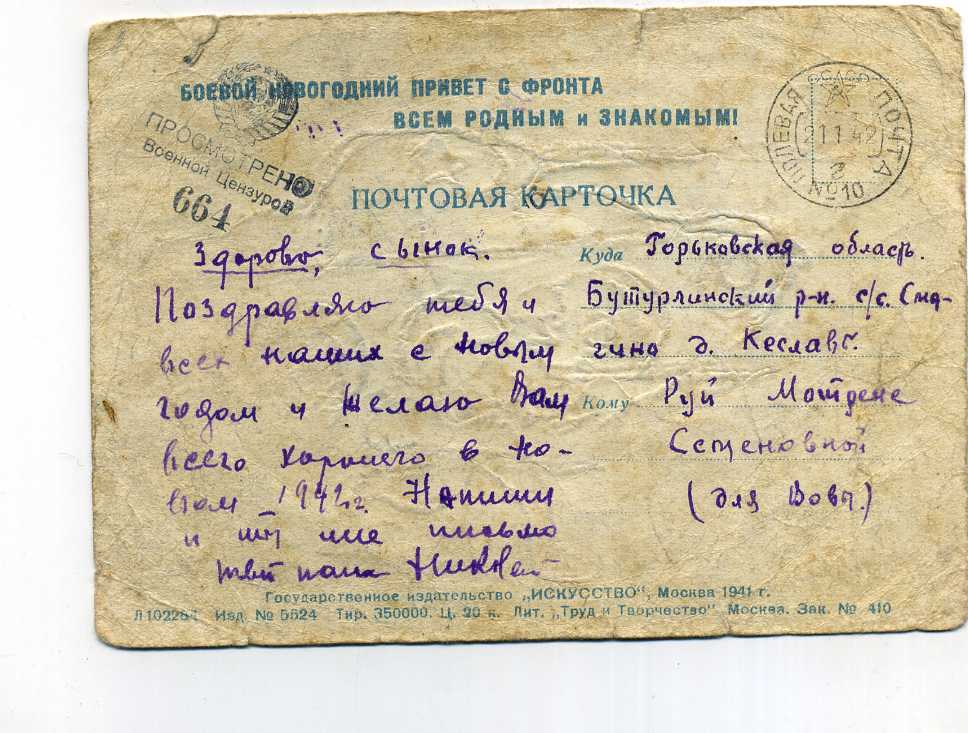 БОЕВОЙ НОВОГОДНИЙ ПРИВЕТ С ФРОНТА
ВСЕМ РОДНЫМ и ЗНАКОМЫМ!
ПРОСМОТРЕНО
Военной Цензурой
664
ПОЛЕВАЯ ПОЧТА
21 1 42
№ 10
ПОЧТОВАЯ КАРТОЧКА
Здорово, сынок.
Поздравляю тебя и
всех наших с новым
годом и желаю Вам
всего хорошего в но-
вом 1942 г. Напиши
и ты мне письмо
твой папа Николай
Куда Горьковская область.
Бутурлинский р-н. с/с. Сма-
гино д. Кеслав
Кому Руй Мотдене
Семеновной
(для Вовы.)
Государственное издательство „ИСКУССТВО", Москва 1941 г.
Л102284 Изд. № 5524 Тир. 350000. Ц. 20 к. Лит. „Труд и Творчество" Москва. Зак. № 410